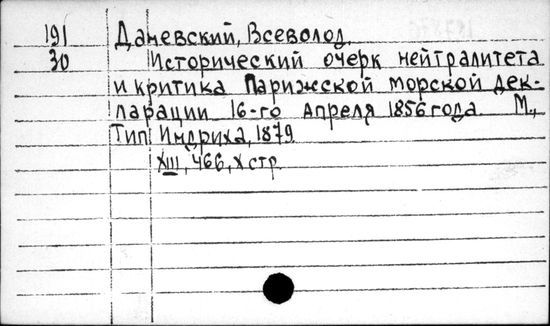 191 Даневский, Всеволод.
30 Исторический очерк нейтралитета
и критика Парижской морской дек-
ларации 16-го апреля 1856 года. М.,
Тип. Индриха, 1879.
XIII, 466, X стр.